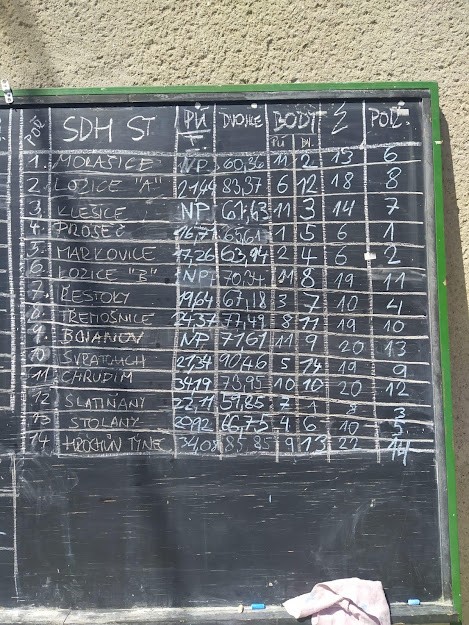 POŘ. SDH ST. PÚ DVOHLE BODY Σ POŘ.
T. PÚ DV.
1. MORAŠICE NP 60,36 11 2 13 6
2. LOŽICE "A" 21,44 83,37 6 12 18 8
3. KLEŠICE NP 61,43 11 3 14 7
4. PROSEČ 16,71 65,61 1 5 6 1
5. MARKOVICE 17,26 63,94 2 4 6 2
6. LOŽICE "B" NP 70,34 11 8 19 11
7. ŘESTOKY 19,64 67,18 3 7 10 4
8. TŘEMOŠNICE 24,37 77,49 8 11 19 10
9. BOJANOV NP 71,61 11 9 20 13
10 SVRATOUCH 21,34 90,46 5 14 19 9
11 CHRUDIM 34,19 73,95 10 10 20 12
12 SLATIŇANY 22,11 59,85 7 1 8 3
13 STOLANY 20,92 66,75 4 6 10 5
14 HROCHŮV TÝNEC 34,08 85,85 9 13 22 14